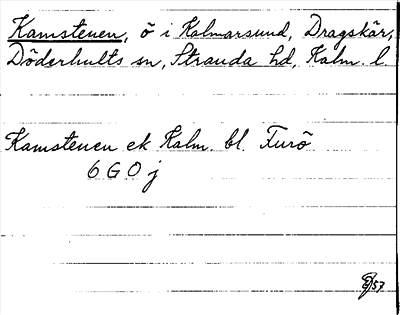 Kamstenen, ö i Kalmarsund, Dragskär,
Döderhults sn, Stranda hd, Kalm. l.
Kamstenen ek Kalm. bl. Furö
6 G O j
/57